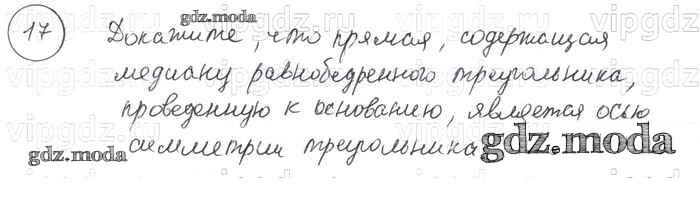 17 Докажите, что прямая, содержащая
медиану равнобедренного треугольника,
проведенную к основанию, является осью
симметрии треугольника.
gdz.moda
gdz.moda
gdz.moda
vipgdz